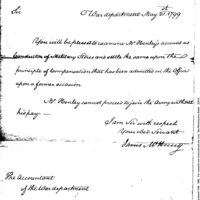 Sir War department May 25th 1799
You will be pleased to examine Mr Henly's account as
Conductor of Military Stores and settle the same upon the
principle of compensation that has been admitted in the Office
upon a former occasion.
Mr Henley cannot proceed to join the Army without
his pay—
I am Sir with respect
Your obed Servant
James McHenry
The Accountant
of the War department